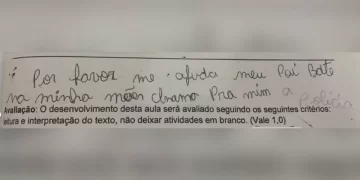 Por favor me ajuda meu Pai Bate
na minha mãen chama Pra mim a Polícia
Avaliação: O desenvolvimento desta aula será avaliado seguindo os seguintes critérios:
leitura e interpretação do texto, não deixar atividades em branco. (Vale 1,0)